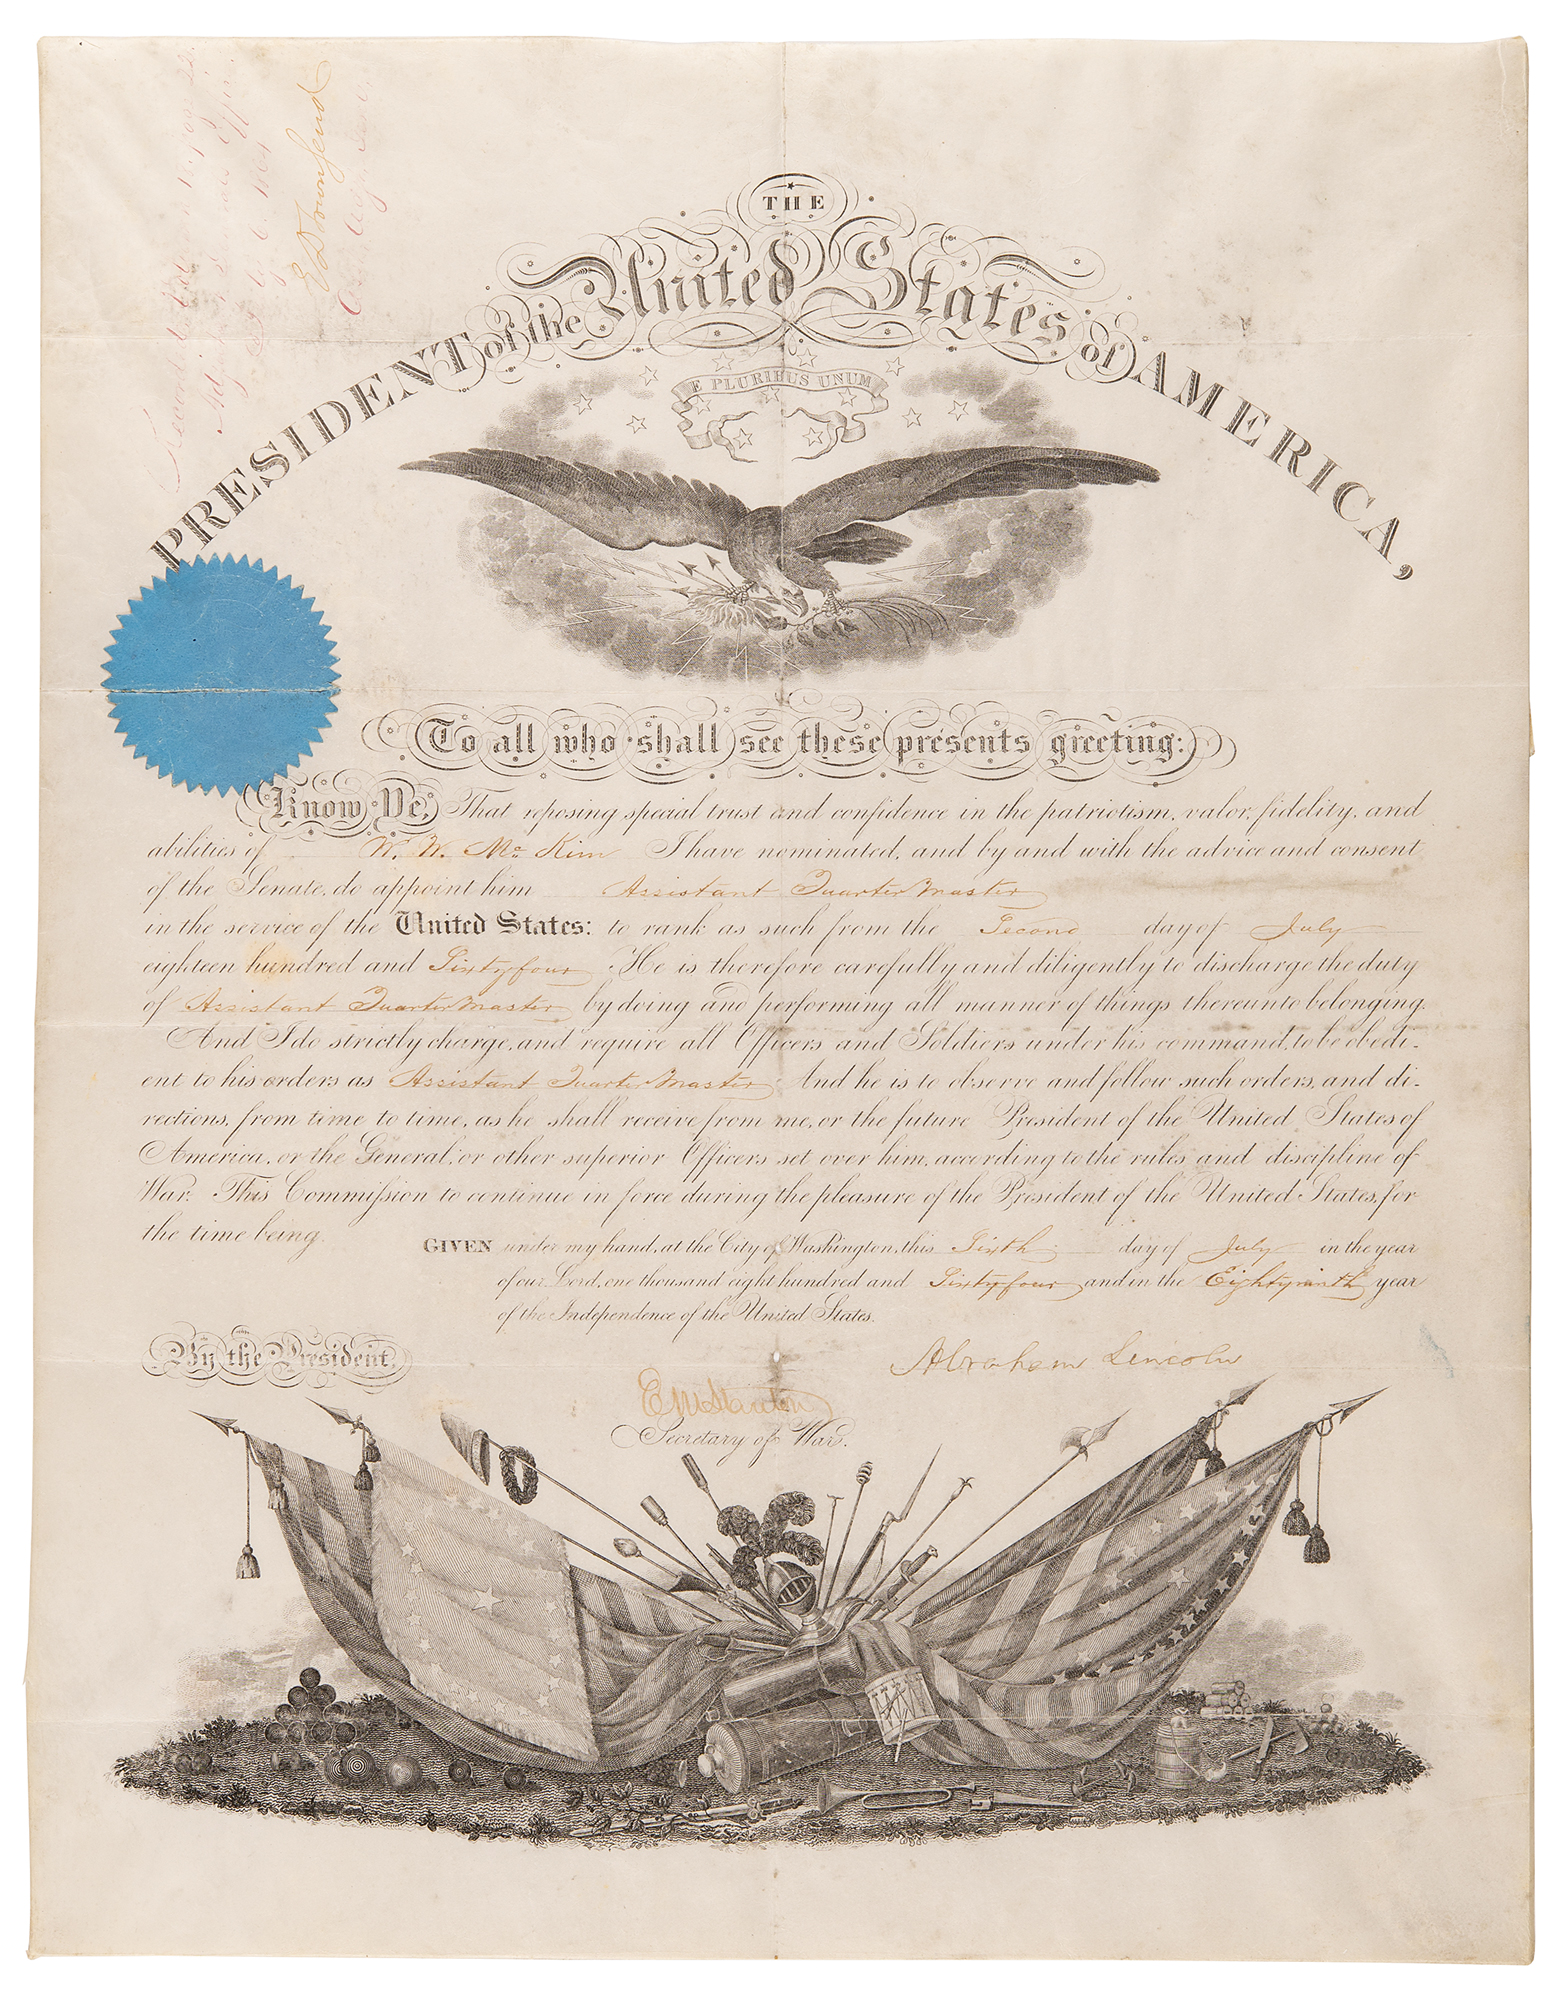 THE
PRESIDENT of the United States of AMERICA,
E PLURIBUS UNUM
To all who shall see these presents greeting:
Know Ye, That reposing special trust and confidence in the patriotism, valor, fidelity, and
abilities of W. W. McKim I have nominated, and by and with the advice and consent
of the Senate, do appoint him Assistant QuarterMaster
in the service of the United States: to rank as such from the Second day of July
eighteen hundred and Sixtyfour He is therefore carefully and diligently to discharge the duty
of Assistant QuarterMaster by doing and performing all manner of things thereunto belonging.
And I do strictly charge, and require all Officers and Soldiers under his command, to be obedi-
ent to his orders as Assistant QuarterMaster And he is to observe and follow such orders, and di-
rections, from time to time, as he shall receive from me, or the future President of the United States of
America, or the General, or other superior Officers set over him, according to the rules and discipline of
War. This Commission to continue in force during the pleasure of the President of the United States, for
the time being.
GIVEN under my hand, at the City of Washington, this Sixth day of July in the year
of our Lord, one thousand eight hundred and Sixtyfour and in the Eightyninth year
of the Independence of the United States.
By the President,
Abraham Lincoln
E M Stanton
Secretary of War.
E D Townsend